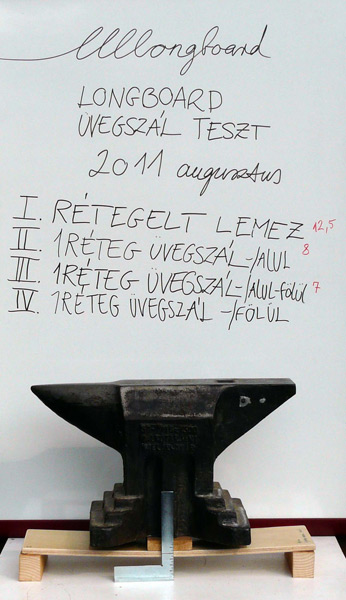 Ullllongboard
LONGBOARD
ÜVEGSZÁL TESZT
2011 augusztus
I. RÉTEGELT LEMEZ 12,5
II. 1 RÉTEG ÜVEGSZÁL-/ALUL 8
III. 1 RÉTEG ÜVEGSZÁL-/ALUL-FÖLÜL 7
IV. 1 RÉTEG ÜVEGSZÁL -/FÖLÜL